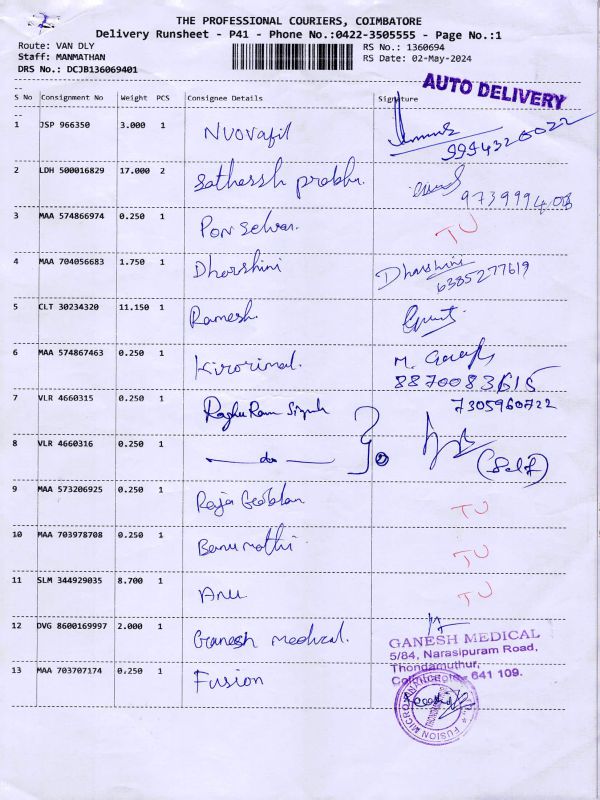 THE PROFESSIONAL COURIERS, COIMBATORE
Delivery Runsheet - P41 - Phone No.:0422-3505555 - Page No.:1
Route: VAN DLY
Staff: MANMATHAN
DRS No.: DCJB136069401
RS No.: 1360694
RS Date: 02-May-2024
AUTO DELIVERY
S No Consignment No Weight PCS Consignee Details Signature
1 JSP 966350 3.000 1
9994320022
2 LDH 500016829 17.000 2 Sathessh prabhu.
9739994408
3 MAA 574866974 0.250 1 Pon selvan. TU
4 MAA 704056683 1.750 1 Dharshini Dharshini
6385277619
5 CLT 30234320 11.150 1 Ramesh.
6 MAA 574867463 0.250 1 M.
8870083615
7 VLR 4660315 0.250 1 Raghu Ram Singh 7305960722
8 VLR 4660316 0.250 1 — do — (Self)
9 MAA 573206925 0.250 1 Raja TU
10 MAA 703978708 0.250 1 Banumathi TU
11 SLM 344929035 8.700 1 Anu TU
12 DVG 8600169997 2.000 1 Ganesh medical.
GANESH MEDICAL
5/84, Narasipuram Road,
Thondamuthur,
Coimbatore - 641 109.
13 MAA 703707174 0.250 1 Fusion